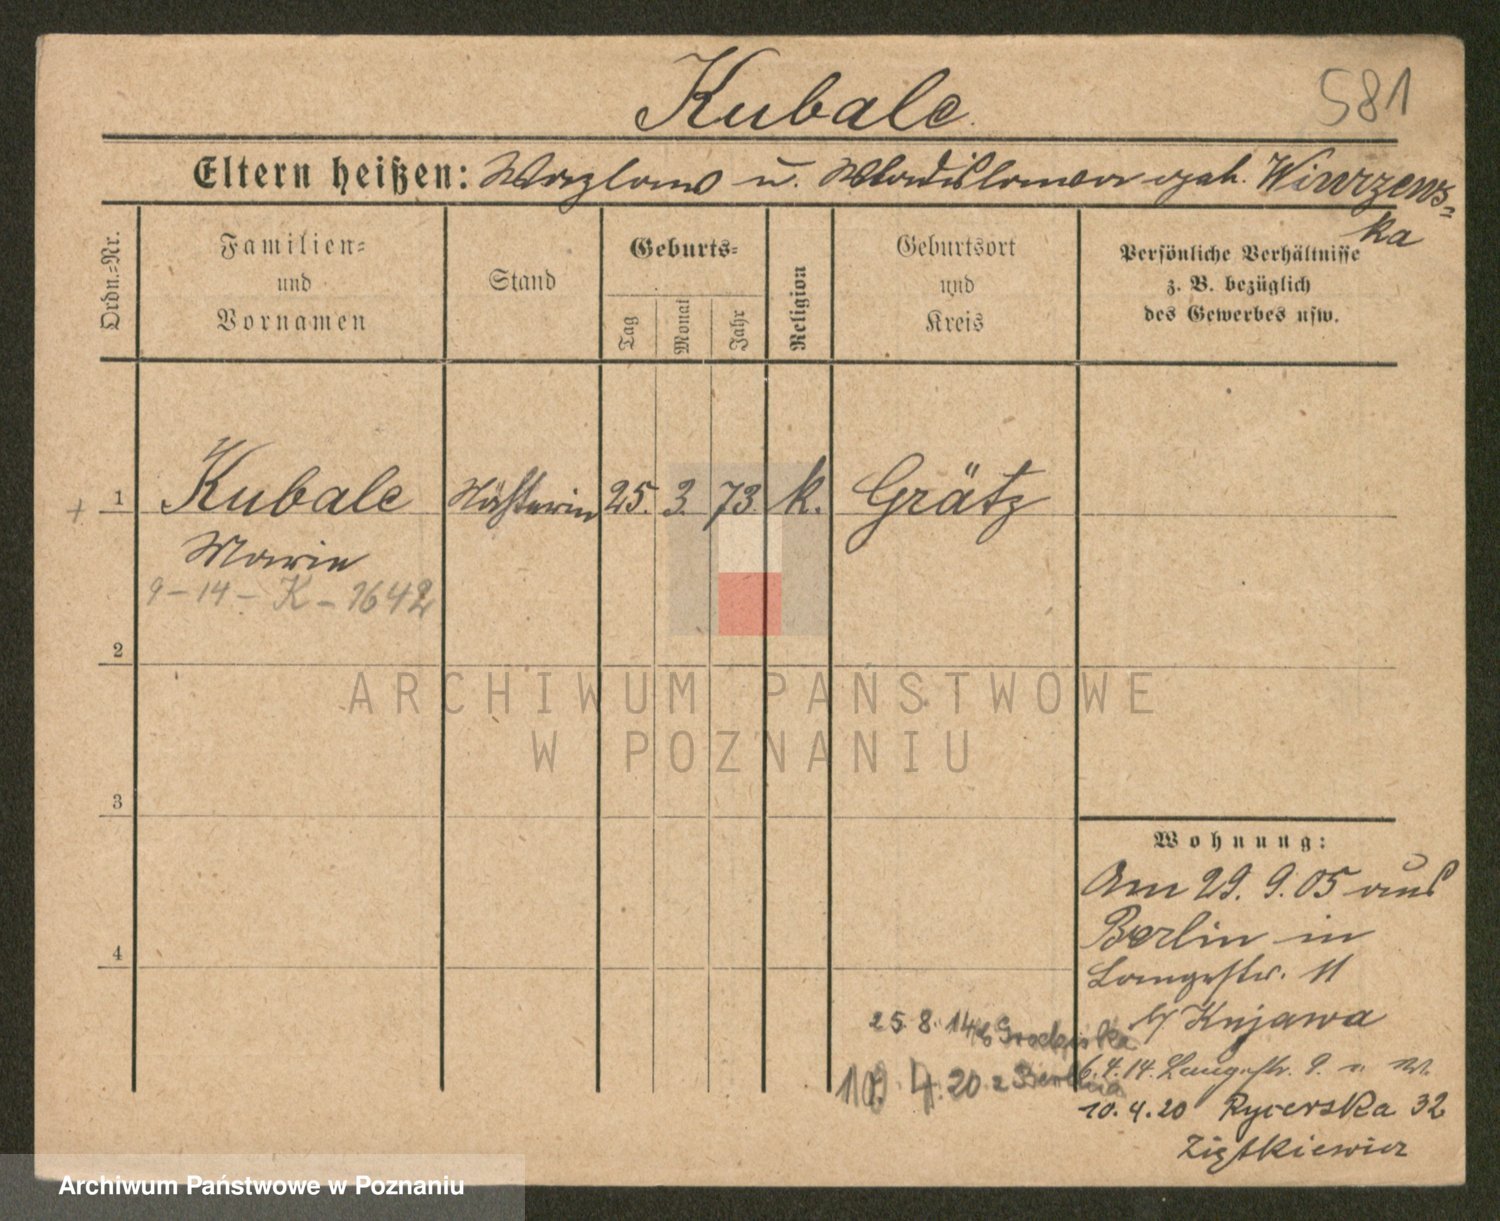 Kubale
581
Eltern heißen: Wazlaw u. Wladislawa geb. Wiurzews=
ka
Ordn.=Nr.
Familien=
und
Vornamen
Stand
Geburts=
Tag
Monat
Jahr
Religion
Geburtsort
und
Kreis
Persönliche Verhältnisse
z. B. bezüglich
des Gewerbes usw.
+ 1 Kubale Näherin 25. 3. 73. k. Grätz
Marie
9-14-K-1642
2
ARCHIWUM PAŃSTWOWE
W POZNANIU
3
Wohnung:
Am 29. 9. 05 aus
Berlin in
4
Langestr. 11
b/ Kujawa
25. 8. 14
6.4.14. Langestr. 9.
10. 4. 20 z Berlina
10.4.20 Rycerska 32
Ziętkiewicz
Archiwum Państwowe w Poznaniu